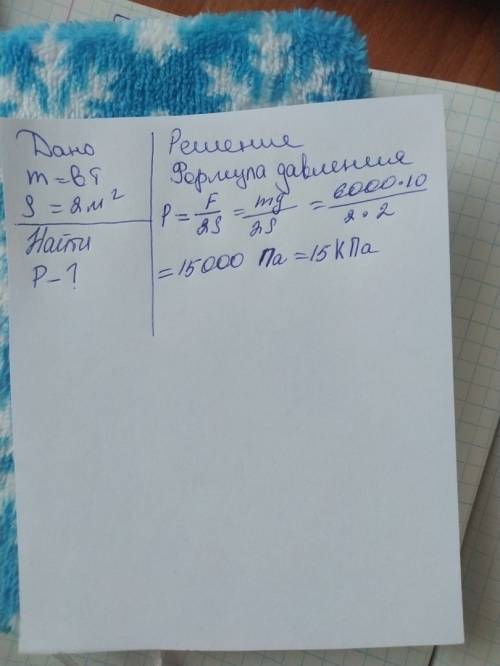 Дано
m = 6т
S = 2м²
Найти
P - ?
Решение
Формула давления
P = F/2S = mg/2S = 6000·10/2·2
= 15000 Па = 15 кПа